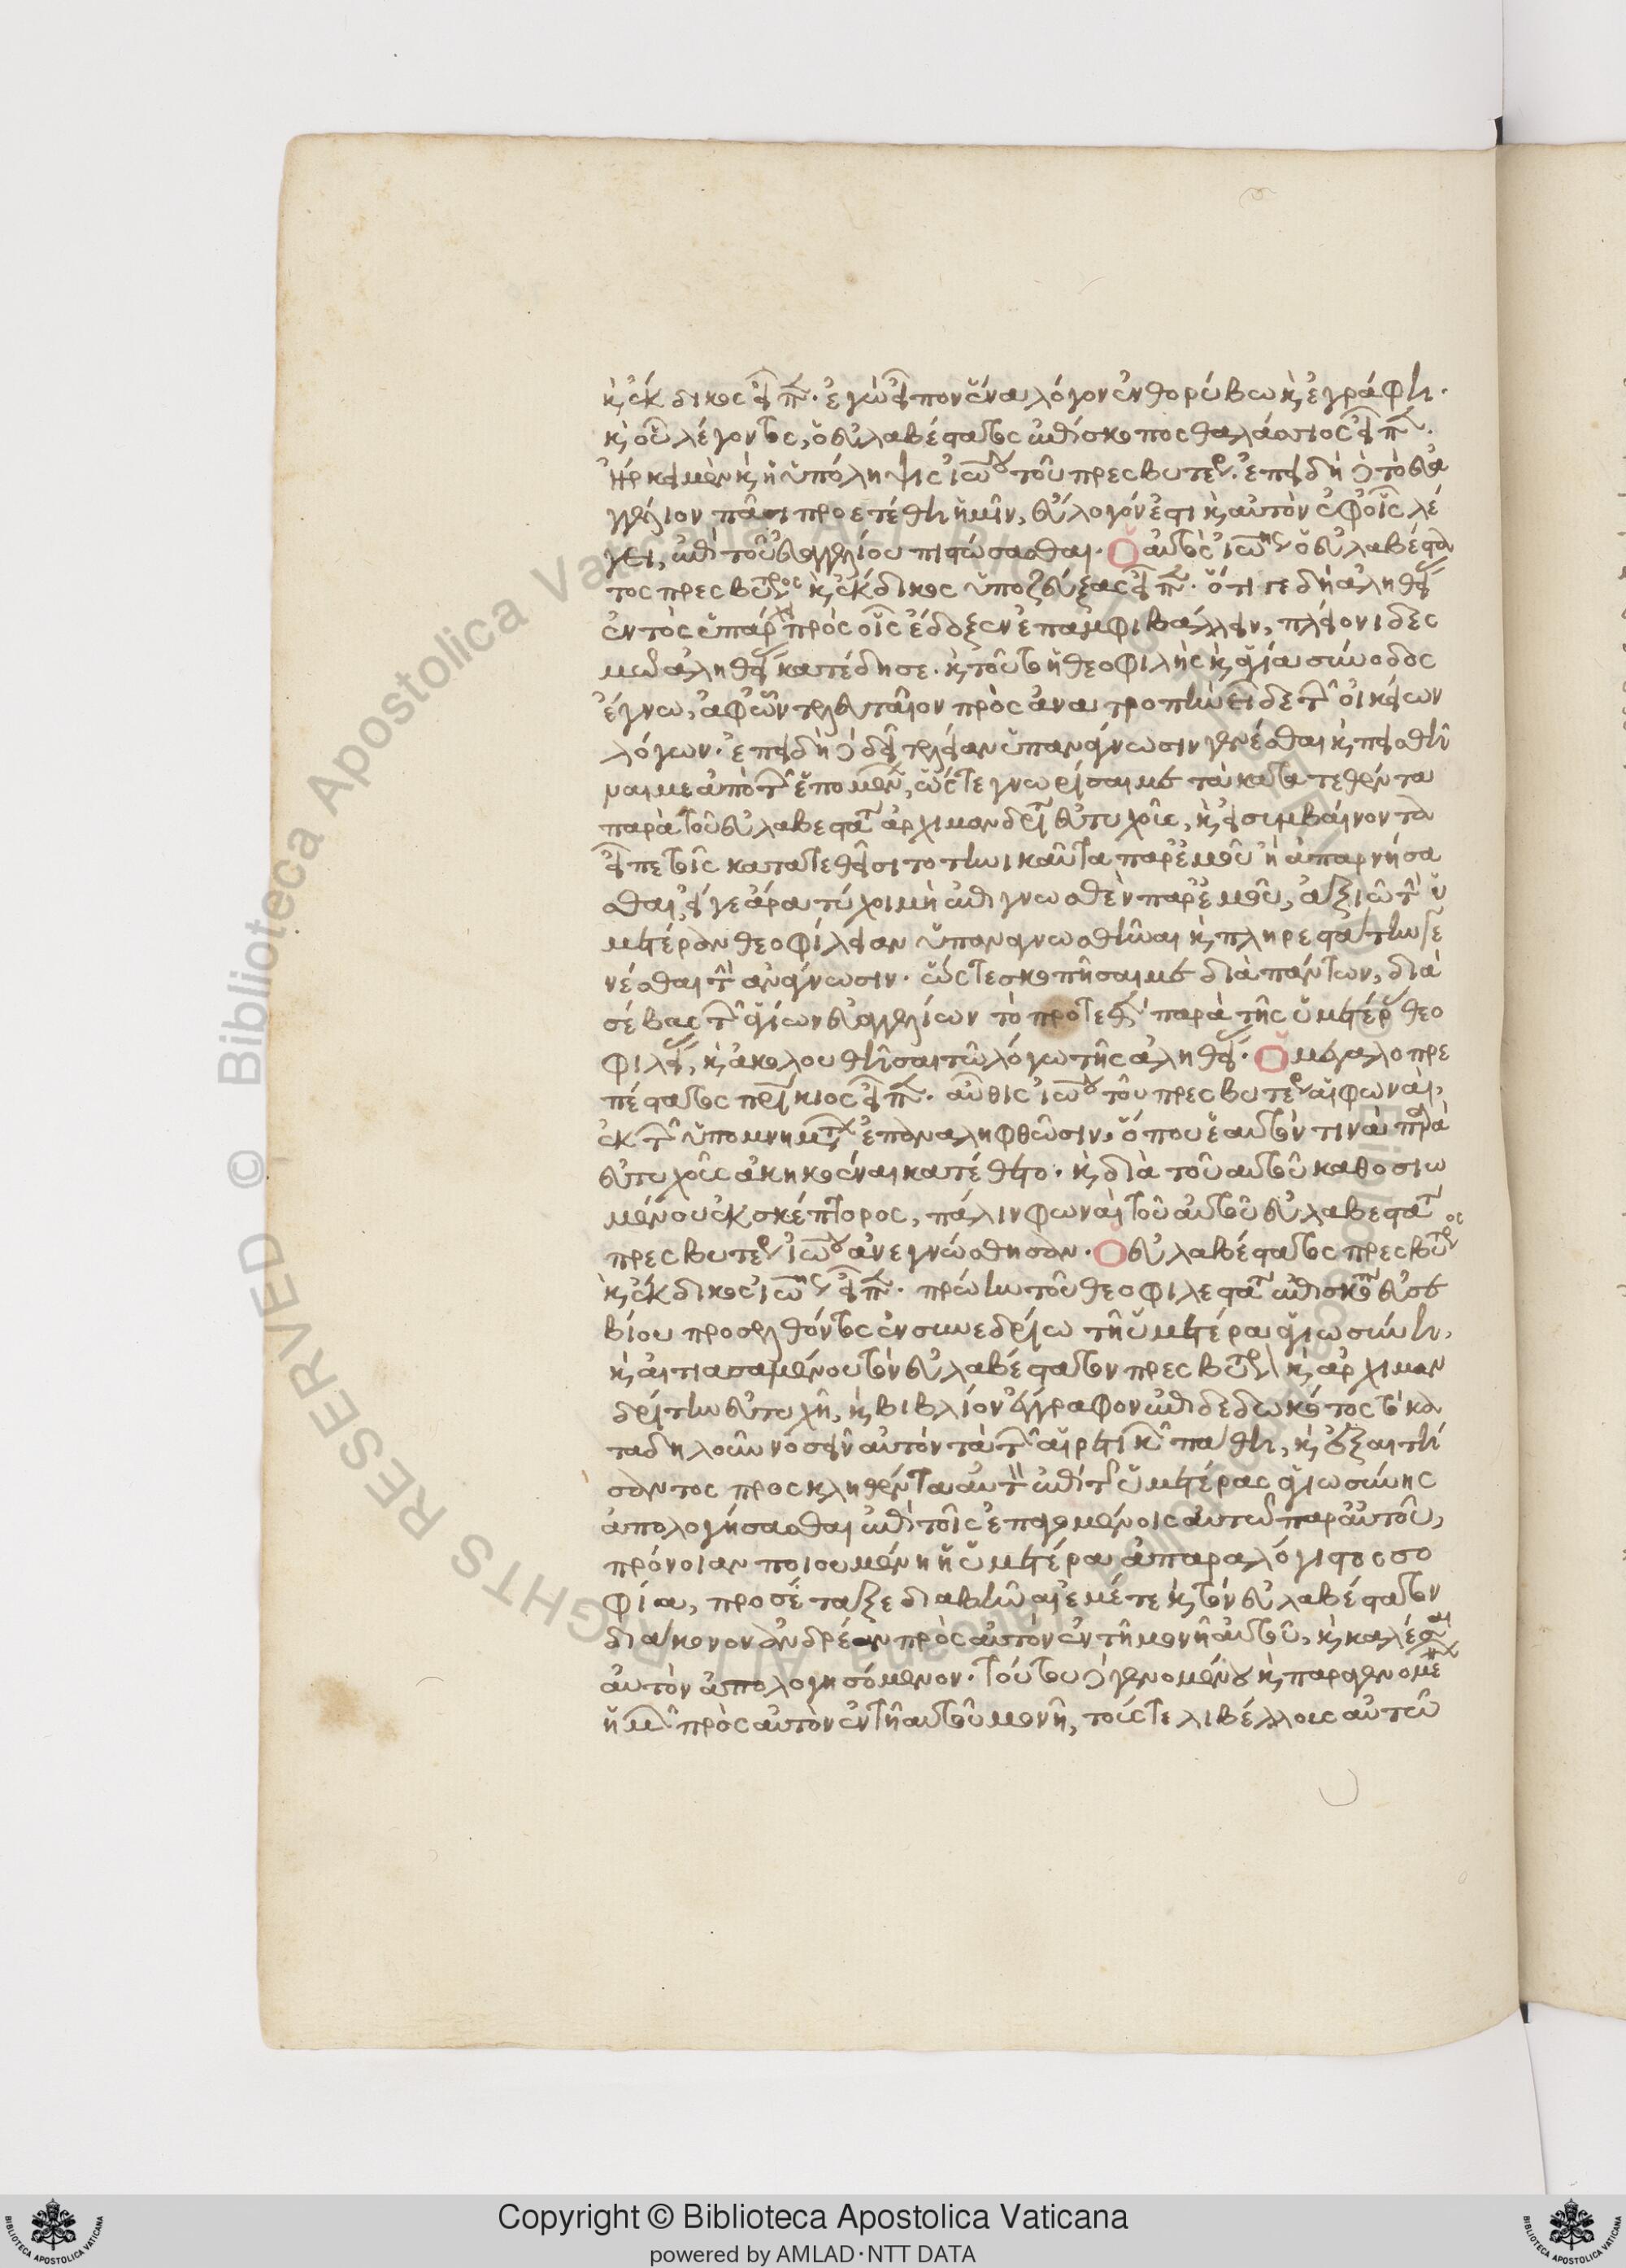 κ(αὶ) ἔκδικος εἶπ(εν). ἐγὼ εἶπον ἕνα λόγον ἐν θορύβω κ(αὶ) ἐγράφη.
κ(αὶ) οὐ λέγοντος, ὁ εὐλαβέστατος ἐπίσκοπος θαλάσσιος εἶπ(εν).
ἤρκει μὲν κ(αὶ) ἡ ὑπόληψις ἰω(άνν)ου τοῦ πρεσβυτέρ(ου). ἐπειδὴ δὲ τὸ εὐα
γγέλιον πᾶσι προετέθη ἡμῖν, εὔλογόν ἐστι κ(αὶ) αὐτὸν ἐφ' οἷς λέ
γει, ἐπὶ τοῦ εὐαγγελίου πιστώσασθαι. Ὁ αὐτὸς ἰω(άνν)ης ὁ εὐλαβέστα
τος πρεσβύτερος κ(αὶ) ἔκδικος ὑποζεύξας εἶπ(εν). ὅτι γε δὴ ἀληθείας
ἐντὸς ὑπάρχει πρὸς οἷς ἔδοξεν ἐπαμφιβάλλειν, πλείονι δεσ
μῶ ἀληθείας κατέδησε. κ(αὶ) τοῦτο ἡ θεοφιλὴς κ(αὶ) ἁγία σύνοδος
ἔγνω, ἀφ' ὧν
λόγων. ἐπειδὴ δὲ δεῖ τελείαν ὑπανάγνωσιν γενέσθαι κ(αὶ) πεισθῆ
ναι με ἀπὸ τῶν ἑπομένων, ὥστε γνωρίσαι με τὰ κατατεθέντα
παρὰ τοῦ εὐλαβεστάτου ἀρχιμανδρίτου εὐτυχοῦς, κ(αὶ) εἰ συμβαίνοντα
εἶπε τοῖς κατατεθεῖσι τοτηνικαῦτα παρ' ἐμοῦ ἢ ἀπαρνήσα
σθαι, εἴγε ἄρα τύχοι μὴ ἐπιγνωσθὲν παρ' ἐμοῦ, ἀξιῶ τὴν ὑ
μετέραν θεοφίλειαν ὑπαναγνωσθῆναι κ(αὶ) πληρεστάτην γε
νέσθαι τὴν ἀνάγνωσιν. ὥστε σκοπῆσαι με διὰ πάντων, διὰ
σέβας τῶν ἁγίων εὐαγγελίων τὸ προτεθὲν παρὰ τῆς ὑμετέρας θεο
φιλείας, κ(αὶ) ἀκολουθῆσαι τῶ λόγω τῆς ἀληθείας. Ὁ μεγαλοπρε
πέστατος πατρίκιος εἶπ(εν). αὖθις ἰω(άνν)ου τοῦ πρεσβυτέρου αἱ φωναὶ,
ἐκ τῶν ὑπομνημάτων ἐπαναληφθῶσιν, ὅπου ἑαυτόν τινα παρὰ
εὐτυχοῦς ἀκηκοέναι κατέθετο. κ(αὶ) διὰ τοῦ αὐτοῦ καθοσιω
μένου ἐκσκέπτορος, πάλιν φωναὶ τοῦ αὐτοῦ εὐλαβεστάτου
πρεσβυτέρου ἰω(άνν)ου ἀνεγνώσθησαν. Ὁ εὐλαβέστατος πρεσβύτερος
κ(αὶ) ἔκδικος ἰω(άνν)ης εἶπ(εν). πρώην τοῦ θεοφιλεστάτου ἐπισκόπου εὐσε
βίου προσελθόντος ἐν συνεδρίω τῆ ὑμετέρα ἁγιωσύνη,
κ(αὶ) αἰτιασαμένου τὸν εὐλαβέστατον πρεσβύτερον κ(αὶ) ἀρχιμαν
δρίτην εὐτυχῆ, κ(αὶ) βιβλίον ἔγγραφον ἐπιδεδωκότος τὸ κα
ταδηλοῦν νοσεῖν αὐτὸν τὰ τῶν αἱρετικῶν πάθη, κ(αὶ) ἐξαιτή
σαντος προσκληθέντα αὐτὸν ἐπὶ τῆς ὑμετέρας ἁγιωσύνης
ἀπολογήσασθαι ἐπὶ τοῖς ἐπαγομένοις αὐτῶ παρ' αὐτοῦ,
πρόνοιαν ποιουμένη ἡ ὑμετέρα ἀπαραλόγιστος σο
φία, προσέταξε διαβῆναι ἐμέ τε κ(αὶ) τὸν εὐλαβέστατον
διάκονον ἀνδρέαν πρὸς αὐτὸν ἐν τῆ μονῆ αὐτοῦ, κ(αὶ) καλέσαι
αὐτὸν ἀπολογησόμενον. τούτου δὲ γενομένου κ(αὶ) παραγενομένων
ἡμῶν πρὸς αὐτὸν ἐν τῆ αὐτοῦ μονῆ, τούς τε λιβέλλους αὐτῶ
Copyright © Biblioteca Apostolica Vaticana
powered by AMLAD·NTT DATA